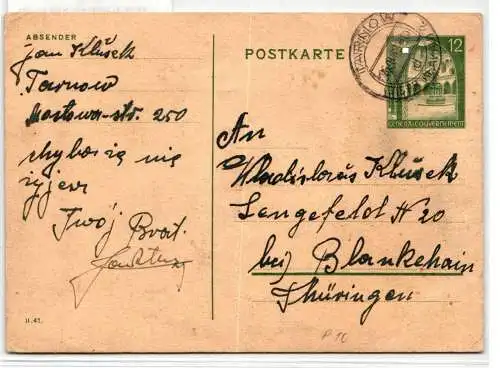 ABSENDER
Jan Klusek
Tarnow
-str. 250
chyba się nie
Twój Brat.
II. 41.
POSTKARTE
TARNOW
12
GENERALGOUVERNEMENT
An
Wladislaus Klusek
Lengefeld N 20
bei Blankehain
Thüringen